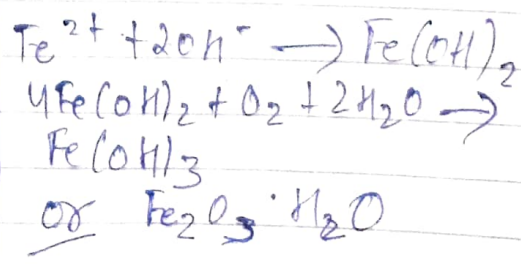 Fe²⁺ + 2OH⁻ → Fe(OH)₂
4Fe(OH)₂ + O₂ + 2H₂O →
Fe(OH)₃
or Fe₂O₃·H₂O